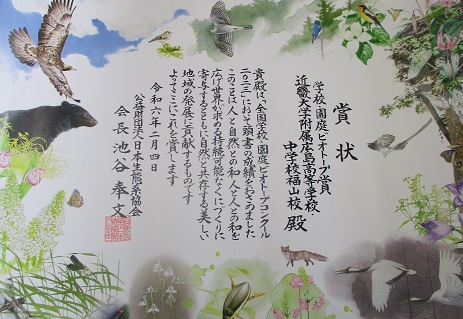 賞状
学校・園庭ビオトープ賞
近畿大学附属広島高等学校
中学校福山校 殿
貴殿は、全国学校・園庭ビオトープコンクール
二〇二三において頭書の成績をおさめました
このことは人と自然との和 人と人との和を
広げ世界が求める持続可能なくにづくりに
寄与するとともに自然と共存する美しい
地域の発展に貢献するものです
よってここにこれを賞します
令和六年二月四日
公益財団法人日本生態系協会
会長 池谷奉文